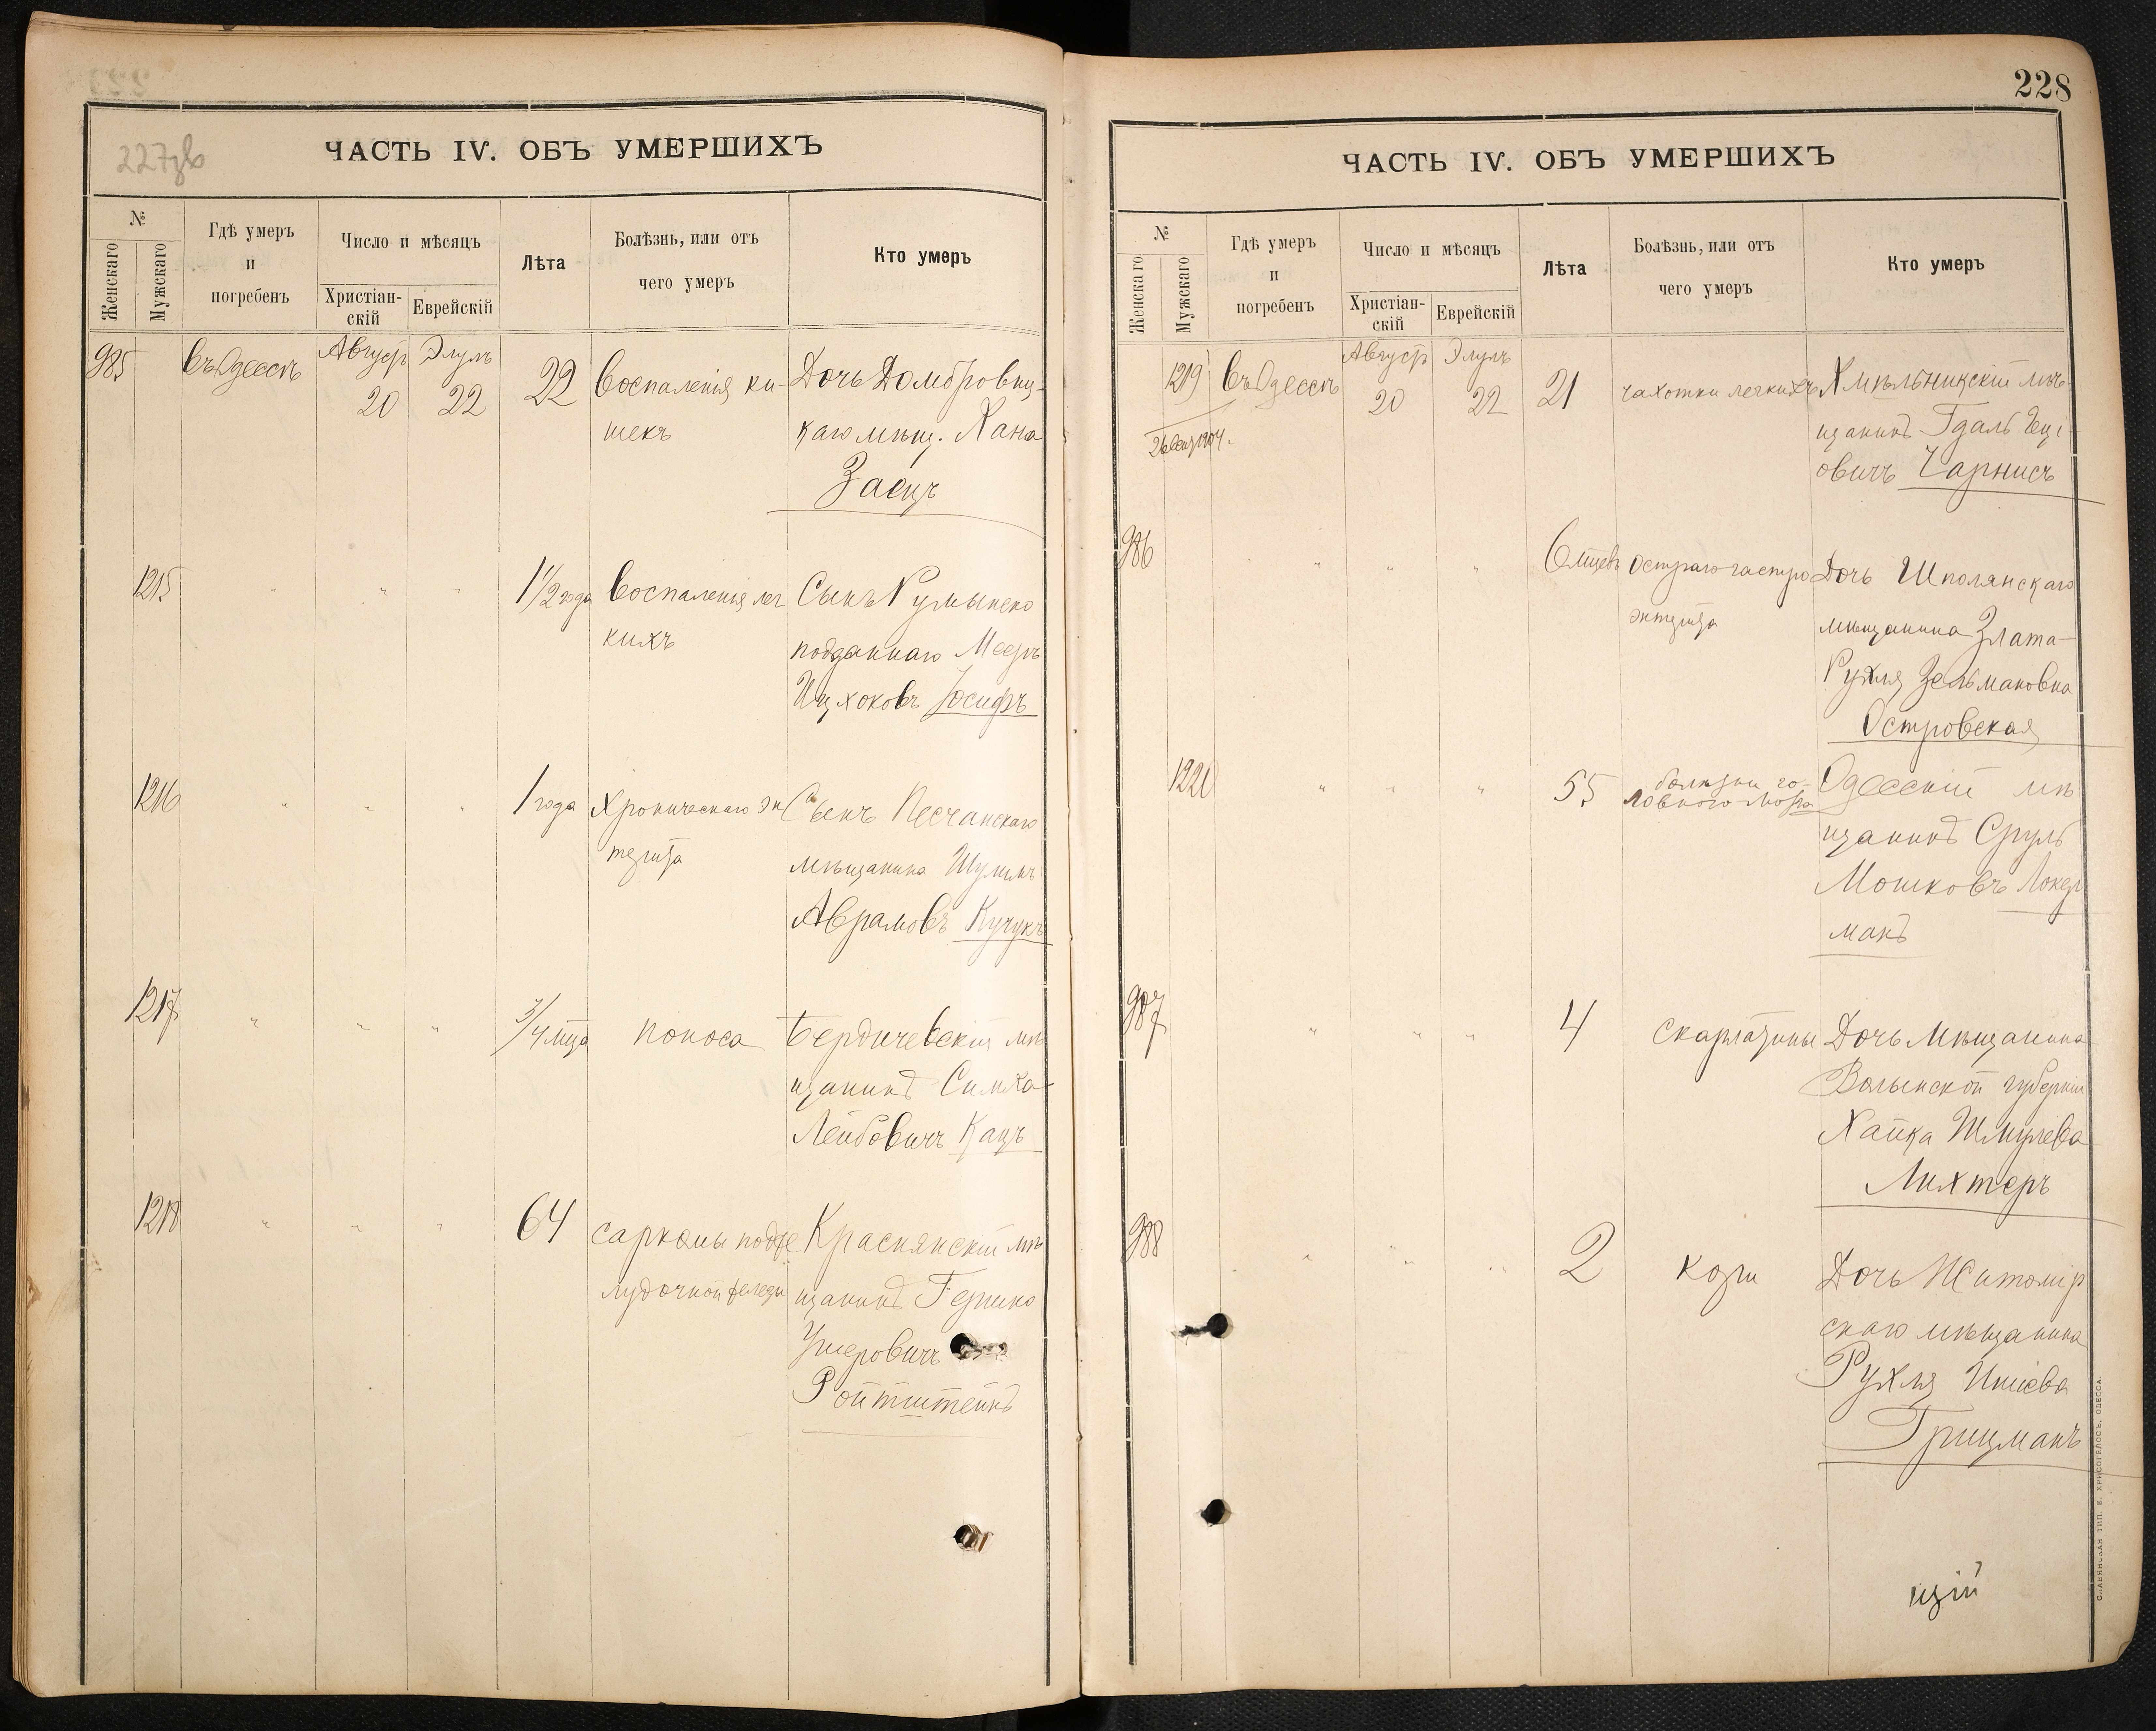 227зв
ЧАСТЬ IV. ОБЪ УМЕРШИХЪ
№
Женскаго
Мужскаго
Гдѣ умеръ
и
погребенъ
Число и мѣсяцъ
Христіан-
скій
Еврейскій
Лѣта
Болѣзнь, или отъ
чего умеръ
Кто умеръ
985
въ Одессѣ
Август
20
Элулъ
22
22
воспаленія ки-
шекъ
Дочь Домбровиц-
каго мѣщ. Хана
Заецъ
1215
" " "
1 1/2 года
воспаленія лег
кихъ
Сынъ Румынско
подданнаго Мееръ
Ицхоковъ Іосифъ
1216
" " "
1 года
хроническаго эн
терита
Сынъ Песчанскаго
мѣщанина Шулимъ
Аврамовъ Кучукъ
1217
" " "
3/4 мца
поноса
Бердичевскій мѣ
щанинъ Симха-
Лейбовичъ Кацъ
1218
" " "
64
саркомы подже
лудочной железы
Краснянскій мѣ
щанинъ Гершко
Ушеровичъ
Ройтштейнъ
228
ЧАСТЬ IV. ОБЪ УМЕРШИХЪ
№
Женскаго
Мужскаго
Гдѣ умеръ
и
погребенъ
Число и мѣсяцъ
Христіан-
скій
Еврейскій
Лѣта
Болѣзнь, или отъ
чего умеръ
Кто умеръ
1219
въ Одессѣ
Август
20
Элулъ
22
21
чахотки легкихъ
Хмѣльницкій мѣ-
щанинъ Гдаль
овичъ Чарнисъ
986
" " "
6 мцевъ
остраго гастро
энтерита
Дочь Шполянскаго
мѣщанина Злата-
Рухля Зельмановна
Островская
1220
" " "
55
болѣзни го-
ловного мозга
Одесскій мѣ
щанинъ Сруль
Мошковъ Локер
манъ
987
" " "
4
скарлатины
Дочь Мѣщанина
Волынской губерніи
Хайка Шмулева
Лихтеръ
988
" " "
2
кори
Дочь Житомір
скаго мѣщанина
Рухля Ишіева
Грицманъ
щій
СЛАВЯНСКАЯ ТИП. Е. ХРИСОГЕЛОСЪ, ОДЕССА.